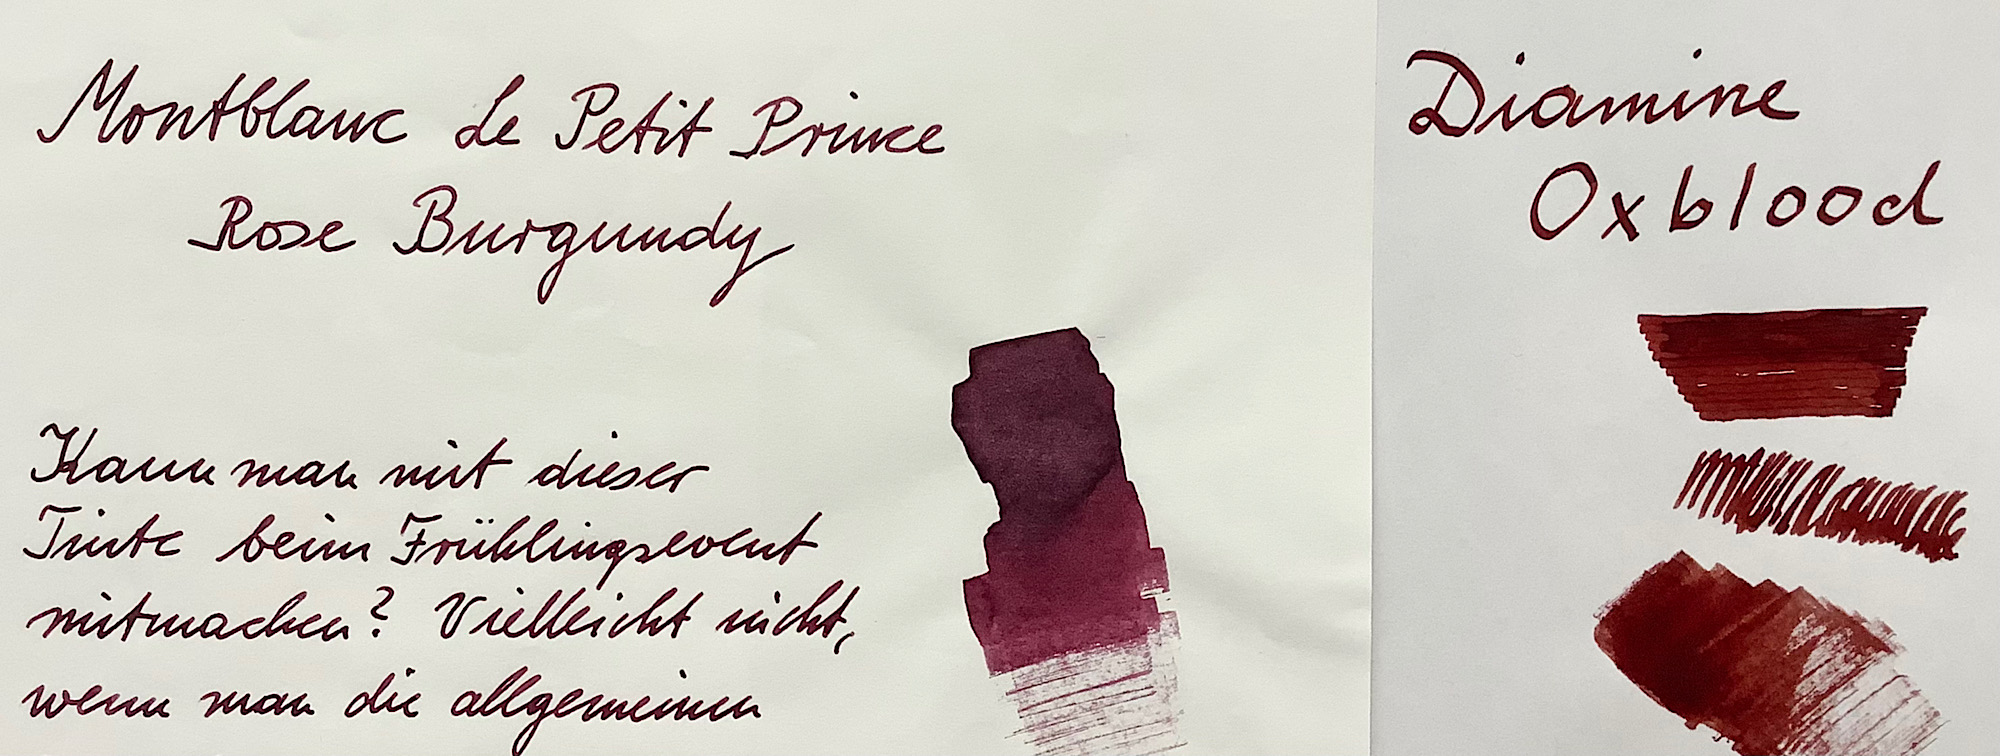 Montblanc Le Petit Prince
Rose Burgundy
Kann man mit dieser
Tinte beim Frühlingsevent
mitmachen? Vielleicht nicht,
wenn man die allgemeinen
Diamine
Oxblood